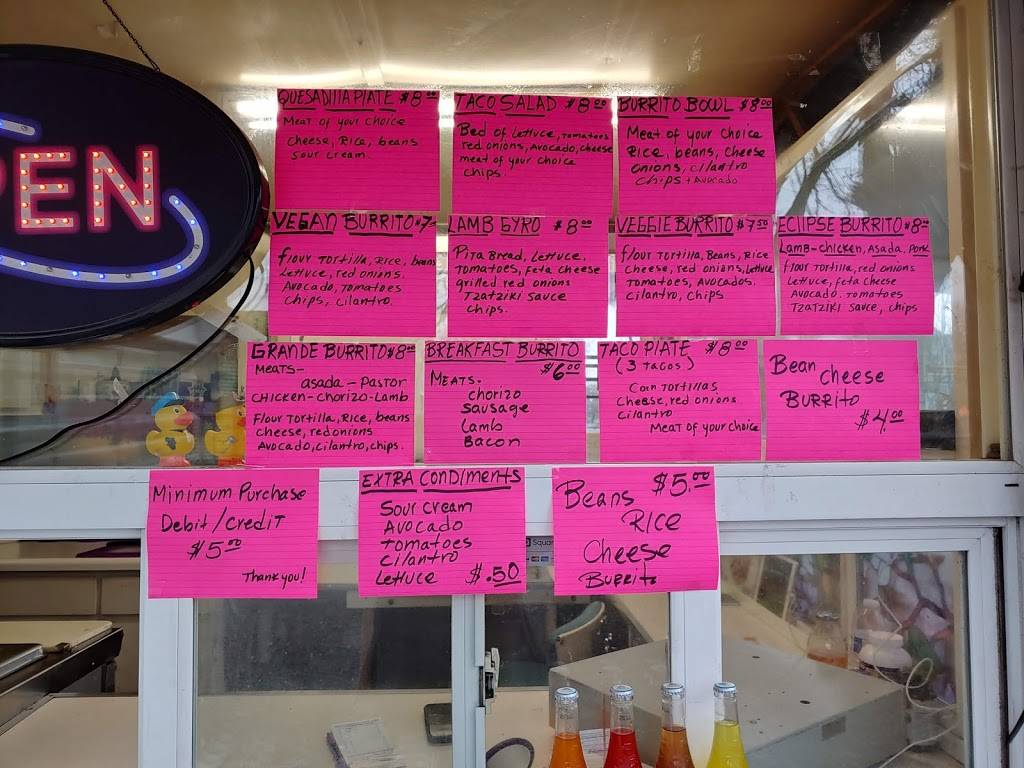 EN
QUESADILLA PLATE $8.00
MEAT OF YOUR CHOICE
CHEESE, RICE, beans
SOUR CREAM.
TACO SALAD $8.00
Bed of Lettuce, TOMATOES
red onions, Avocado, cheese
meat of your choice
chips.
BURRITO BOWL $8.00
Meat of Your Choice
RICE, beans, Cheese
onions, cilantro
chips + Avocado
VEGAN BURRITO $7
flour TORTILLA, RICE, beans
Lettuce, red onions.
Avocado, Tomatoes
chips, cilantro.
LAMB GYRO $8.00
PITA BREAD, Lettuce,
Tomatoes, Feta Cheese
grilled red onions
TZATZIKI SAUCE
Chips.
VEGGIE BURRITO $7.50
flour Tortilla, Beans, RICE
Cheese, red onions, Lettuce
Tomatoes, Avocados.
cilantro, chips
ECLIPSE BURRITO $8.00
LAMB-chicken, Asada, Pork
flour Tortilla, red onions
Lettuce, feta cheese
Avocado. Tomatoes
TZATZIKI Sauce, chips
GRANDE BURRITO $8.00
MEATS-
asada - PASTOR
CHICKEN - CHORIZO - Lamb
Flour Tortilla, RICE, beans
cheese, red onions
Avocado, cilantro, chips.
BREAKFAST BURRITO
$6.00
MEATS.
chorizo
Sausage
Lamb
Bacon
TACO PLATE $8.00
(3 TACOS)
Corn TORTILLAS
Cheese, red onions
Cilantro
Meat of your choice
Bean cheese
BURRITO
$4.00
Minimum Purchase
Debit/Credit
$5.00
Thank you!
EXTRA CONDIMENTS
SOUR CREAM
AVOCADO
Tomatoes
cilantro
LETTUCE $.50
Beans $5.00
RICE
Cheese
BURRITO
Square